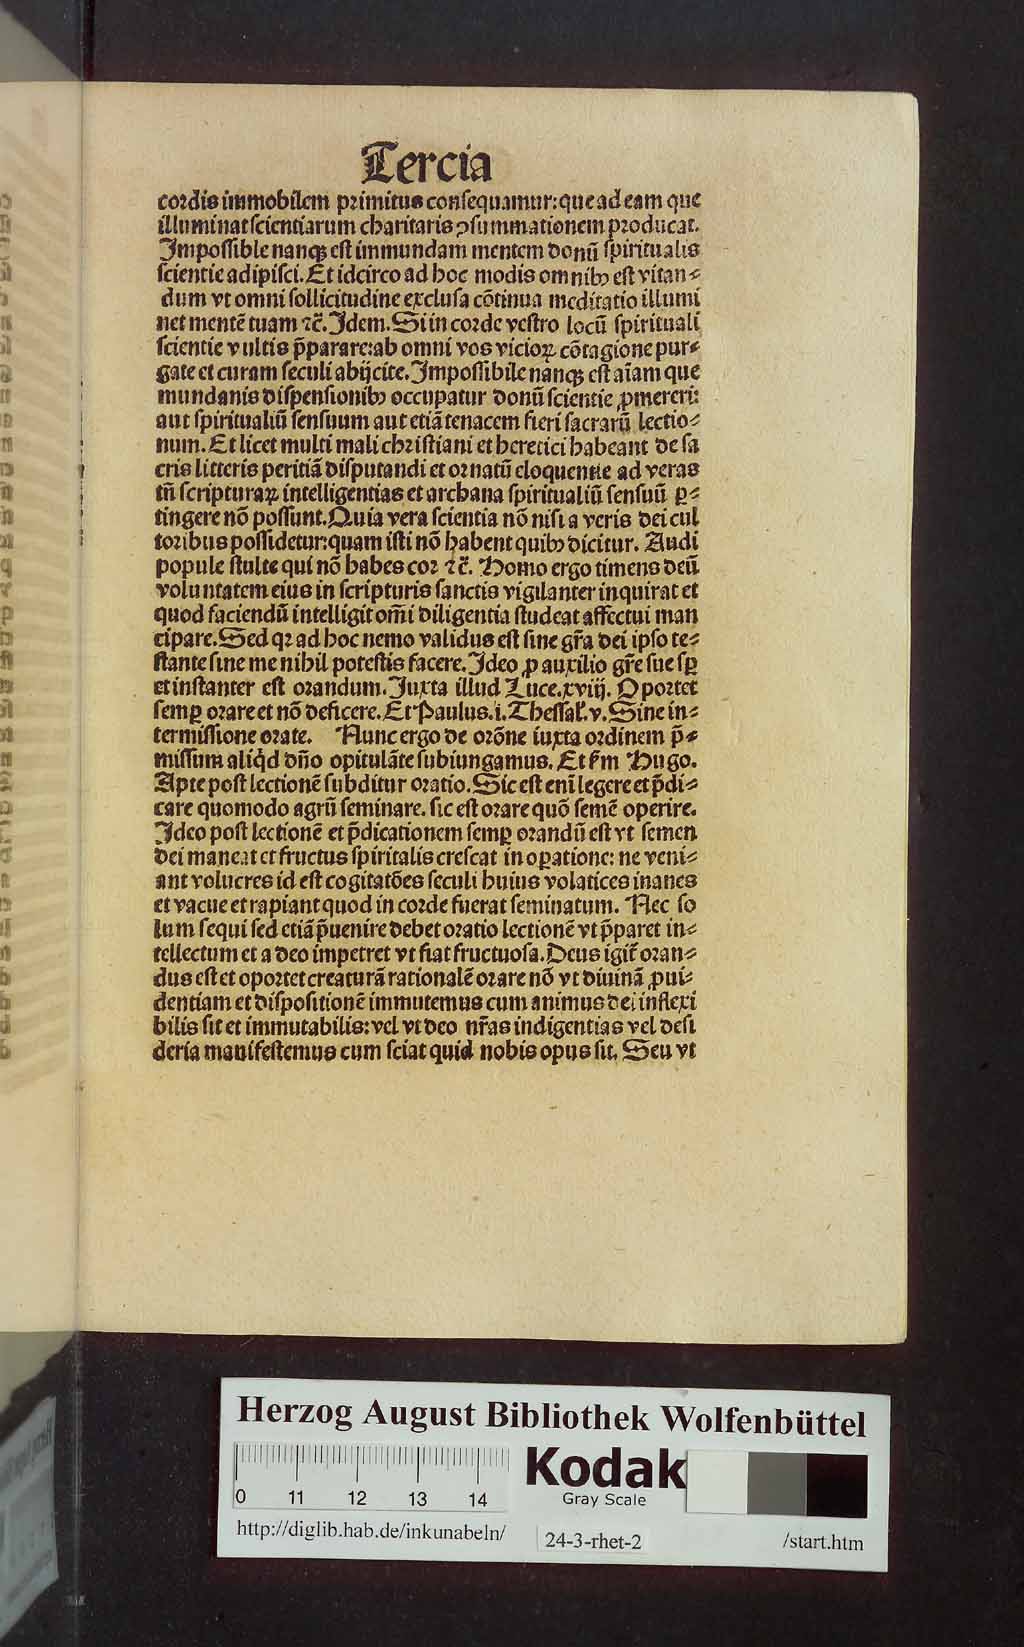 Tercia
cordis immobilem primitus consequamur: que ad eam que
illuminat scientiarum charitatis ꝯsummationem producat.
Impossible nanqꝫ est immundam mentem donū spiritualis
scientie adipisci. Et idcirco ad hoc modis omnibꝰ est vitan⸗
dum vt omni sollicitudine exclusa cōtinua meditatio illumi
net mentē tuam ⁊c̄. Idem. Si in corde vestro locū spirituali
scientie vultis p̄parare: ab omni vos vicioꝝ cōtagione pur⸗
gate et curam seculi abijcite. Impossibile nanqꝫ est aīam que
mundanis dispensionibꝰ occupatur donū scientie ꝓmereri:
aut spiritualiū sensuum aut etiā tenacem fieri sacrarū lectio⸗
num. Et licet multi mali christiani et heretici habeant de sa
cris litteris peritiā disputandi et ornatū eloquentie ad veras
tn̄ scripturaꝝ intelligentias et archana spiritualiū sensuū ꝑ⸗
tingere nō possunt. Quia vera scientia nō nisi a veris dei cul
toribus possidetur: quam isti nō habent quibꝰ dicitur. Audi
popule stulte qui nō habes cor ⁊c̄. Homo ergo timens deū
voluntatem eius in scripturis sanctis vigilanter inquirat et
quod faciendū intelligit om̄i diligentia studeat affectui man
cipare. Sed qꝛ ad hoc nemo validus est sine gr̄a dei ipso te⸗
stante sine me nihil potestis facere. Ideo ꝓ auxilio gr̄e sue sꝑ
et instanter est orandum. Iuxta illud Luce. xviij. Oportet
semꝑ orare et nō deficere. Et Paulus. i. Thessal̄. v. Sine in⸗
termissione orate. Nunc ergo de orōne iuxta ordinem p̄⸗
missum aliq̇d dn̄o opitulāte subiungamus. Et ẜm Hugo.
Apte post lectionē subditur oratio. Sic est enī legere et p̄di⸗
care quomodo agrū seminare. sic est orare quō semē operire.
Ideo post lectionē et p̄dicationem semꝑ orandū est vt semen
dei maneat et fructus spiritalis crescat in oꝑatione: ne veni⸗
ant volucres id est cogitatōes seculi huius volatices inanes
et vacue et rapiant quod in corde fuerat seminatum. Nec so
lum sequi sed etiā p̄uenire debet oratio lectionē vt p̄paret in⸗
tellectum et a deo impetret vt fiat fructuosa. Deus igit̄ oran⸗
dus est et oportet creaturā rationalē orare nō vt diuinā ꝓui⸗
dentiam et dispositionē immutemus cum animus dei inflexi
bilis sit et immutabilis: vel vt deo nr̄as indigentias vel desi
deria manifestemus cum sciat quid nobis opus sit. Seu vt
Herzog August Bibliothek Wolfenbüttel
0 11 12 13 14
Kodak
Gray Scale
http://diglib.hab.de/inkunabeln/ 24-3-rhet-2 /start.htm